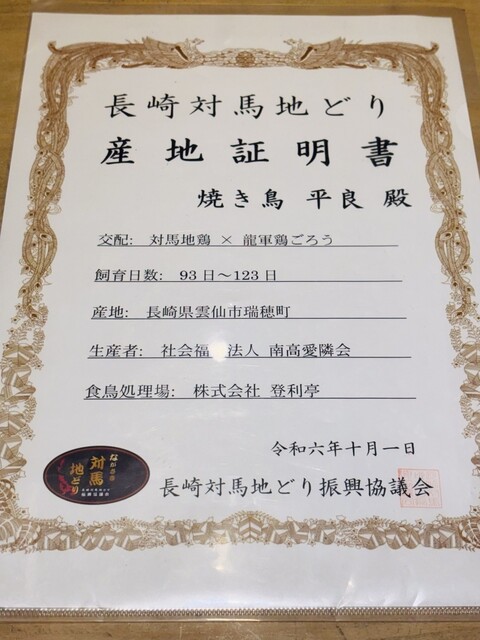 長崎対馬地どり
産地証明書
焼き鳥 平良 殿
交配: 対馬地鶏 × 龍軍鶏ごろう
飼育日数: 93日～123日
産地: 長崎県雲仙市瑞穂町
生産者: 社会福 法人 南高愛隣会
食鳥処理場: 株式会社 登利亭
令和六年十月一日
ながさき
対馬
地どり
長崎対馬地どり振興協議会